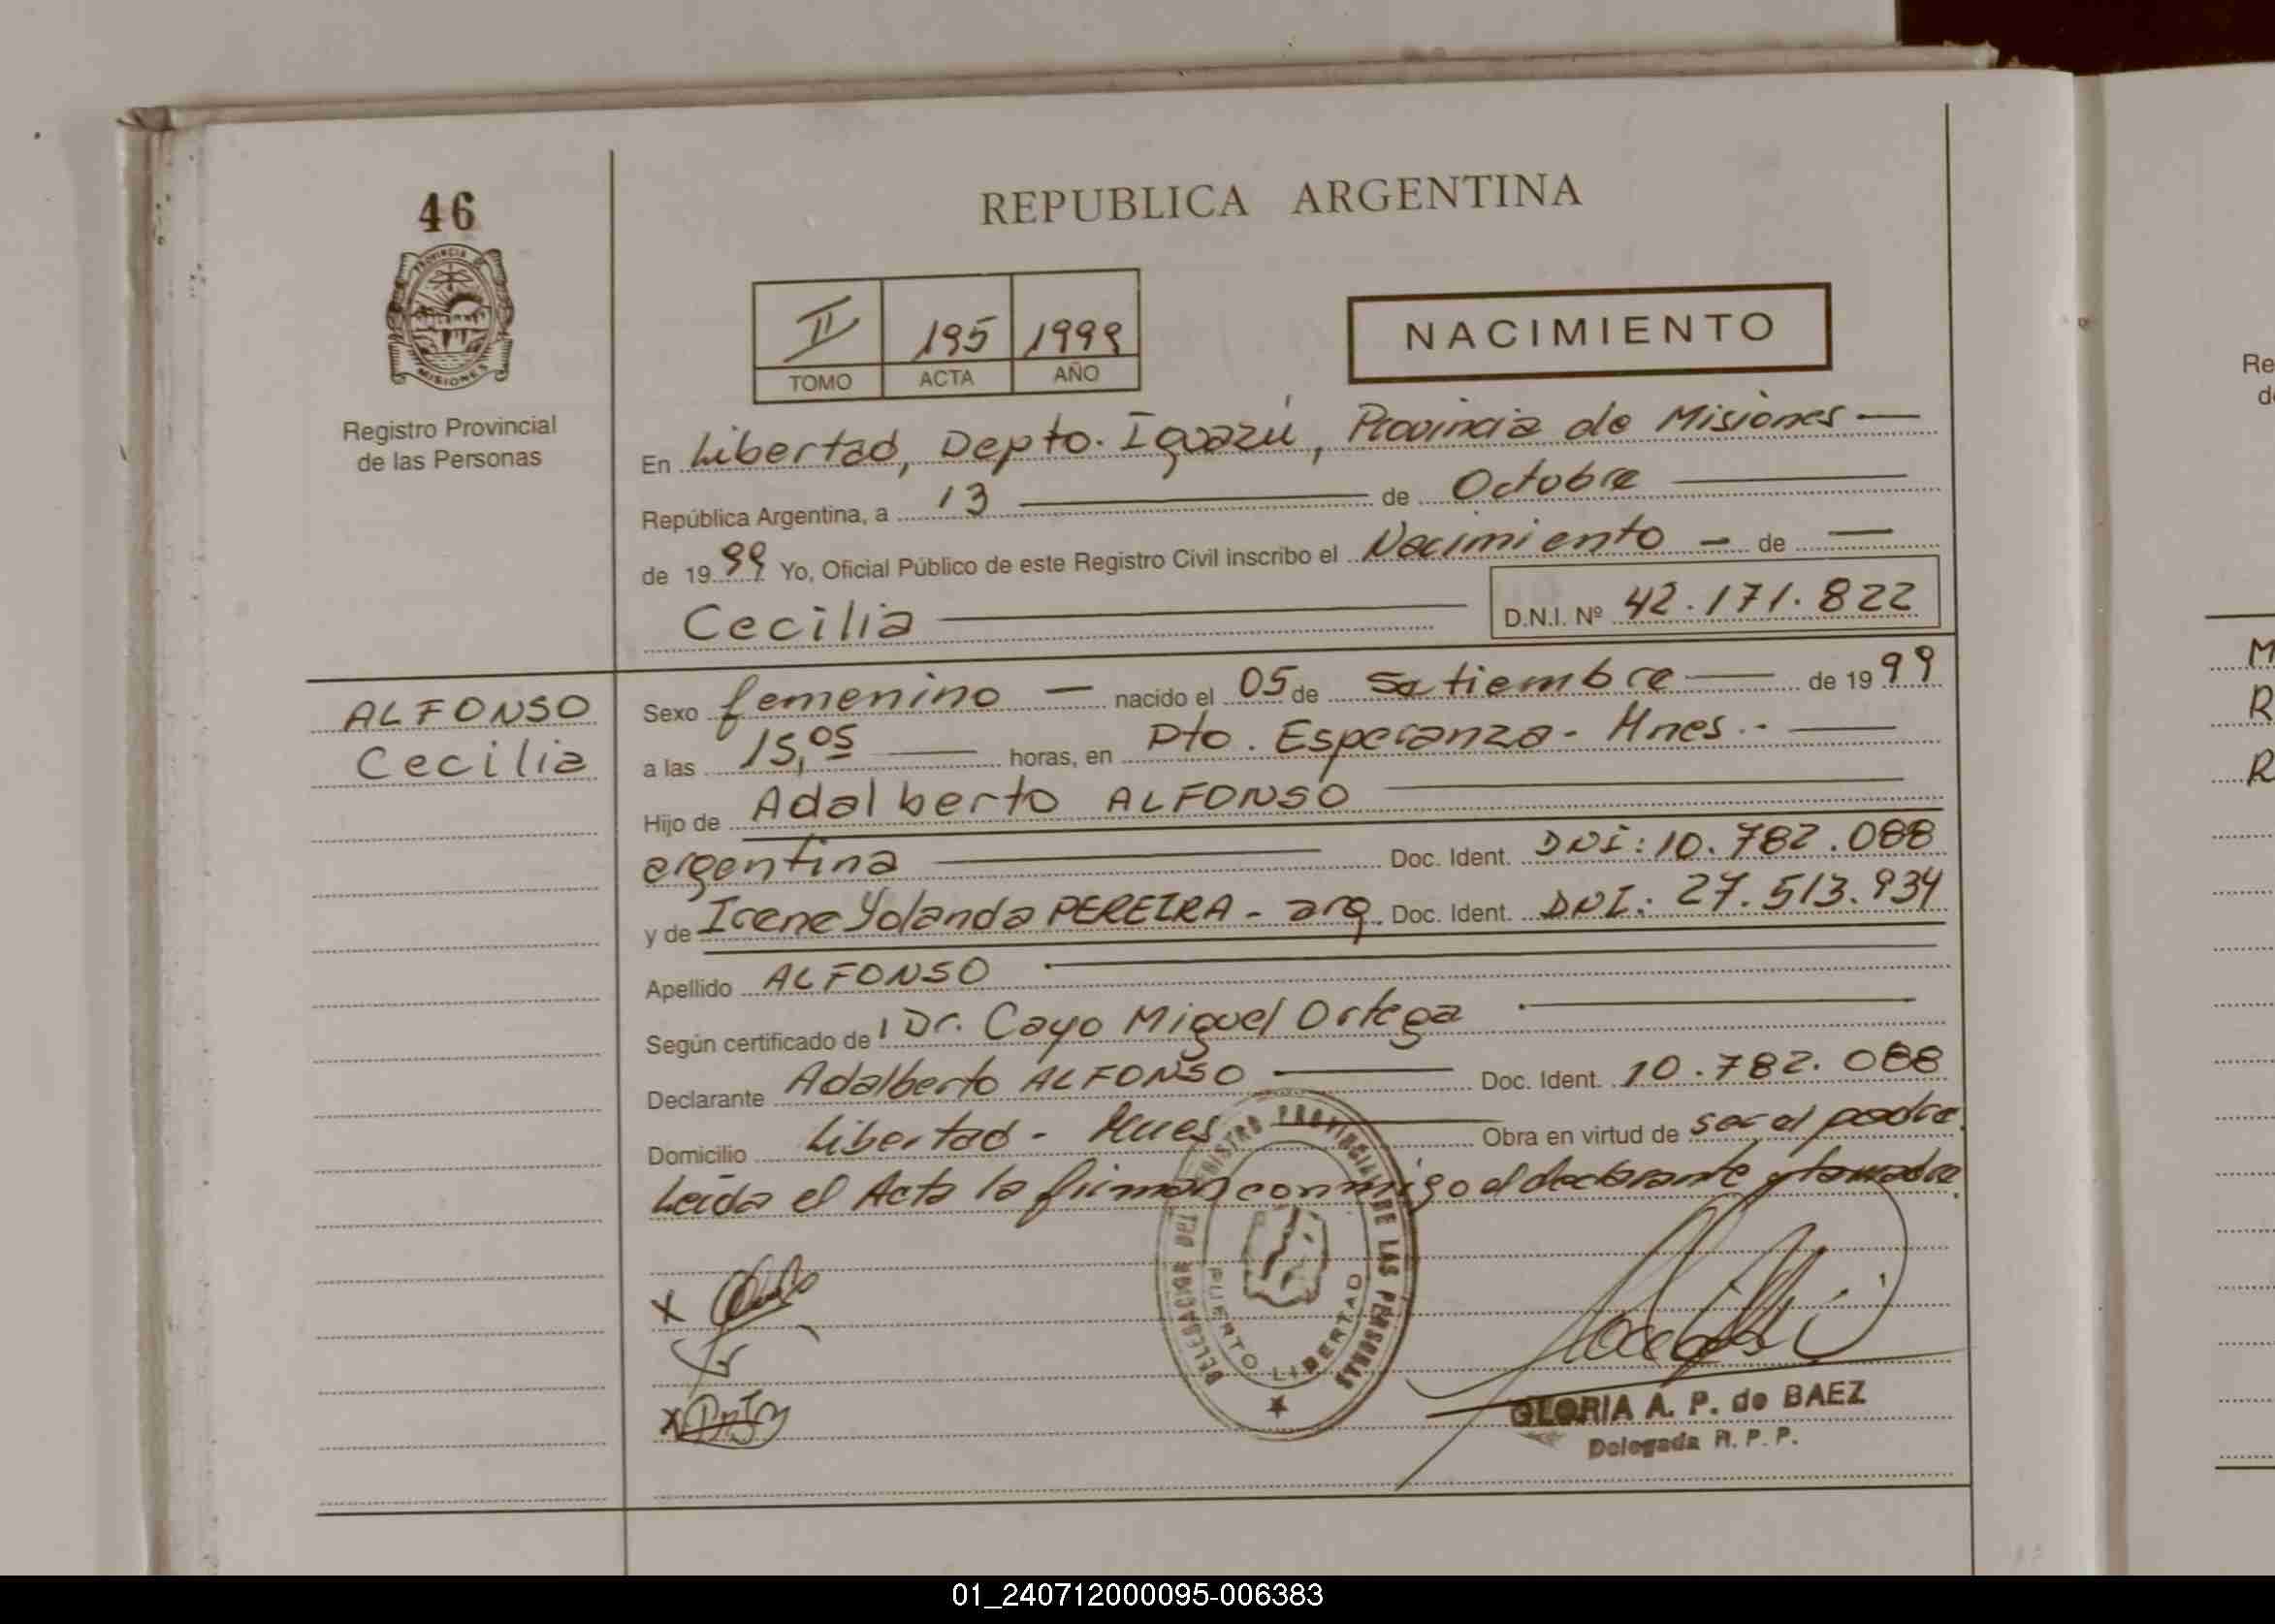 46
PROVINCIA DE
MISIONES
Registro Provincial
de las Personas
REPUBLICA ARGENTINA
II 195 1999
TOMO ACTA AÑO
NACIMIENTO
En Libertad, Depto. Iguazú, Provincia de Misiones —
República Argentina, a 13 — de Octubre —
de 1999 Yo, Oficial Público de este Registro Civil inscribo el Nacimiento - de —
Cecilia — D.N.I. Nº 42.171.822
ALFONSO
Cecilia
Sexo femenino — nacido el 05 de Setiembre — de 1999
a las 15,05 — horas, en Pto. Esperanza - Mnes.- —
Hijo de Adalberto ALFONSO —
argentina — Doc. Ident. DNI: 10.782.088
y de Irene Yolanda PEREIRA - arg. Doc. Ident. DNI: 27.513.934
Apellido ALFONSO —
Según certificado de Dr. Cayo Miguel Ortega —
Declarante Adalberto ALFONSO — Doc. Ident. 10.782.088
Domicilio Libertad - Mnes — Obra en virtud de ser el padre.
Leída el Acta la firman conmigo el declarante y la madre.
DELEGACION DEL REGISTRO PROVINCIAL DE LAS PERSONAS
PUERTO LIBERTAD
GLORIA A. P. de BAEZ
Delegada R. P. P.
Re
de
M
R
R
01_240712000095-006383